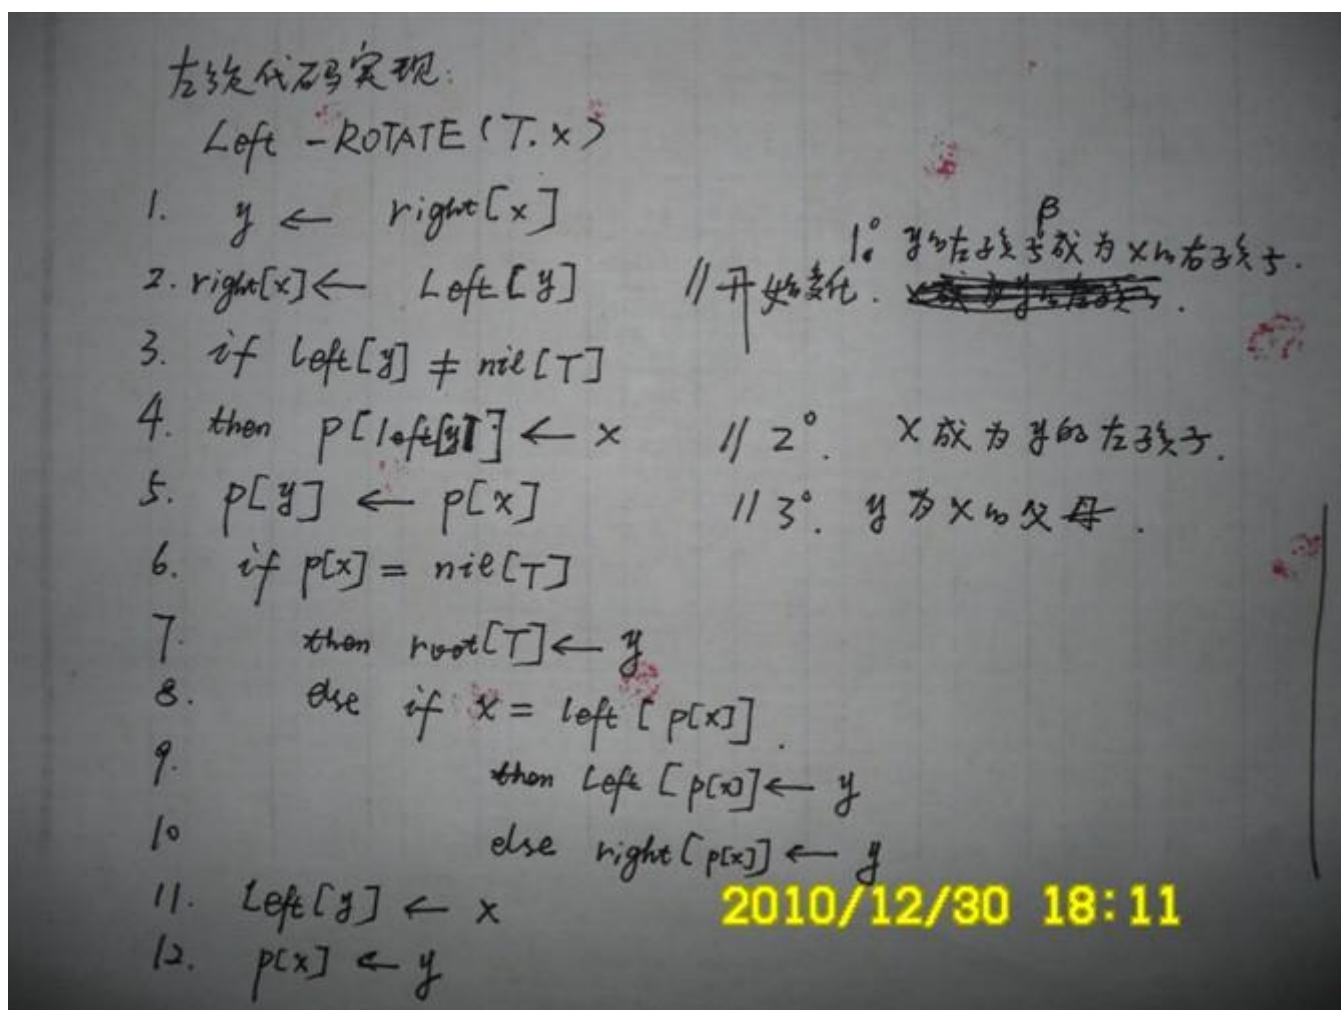 左旋代码实现:
Left -ROTATE(T.x)
1. y ← right[x]
2. right[x] ← Left[y] //开始变化. 1° y的左孩子成为x的右孩子.
β
3. if left[y] ≠ nil[T]
4. then p[left[y]] ← x //2°. x成为y的左孩子.
5. p[y] ← p[x] //3°. y为x的父母.
6. if p[x] = nil[T]
7. then root[T] ← y
8. else if x = left[p[x]]
9. then Left[p[x]] ← y
10 else right[p[x]] ← y
11. Left[y] ← x
12. p[x] ← y
2010/12/30 18:11